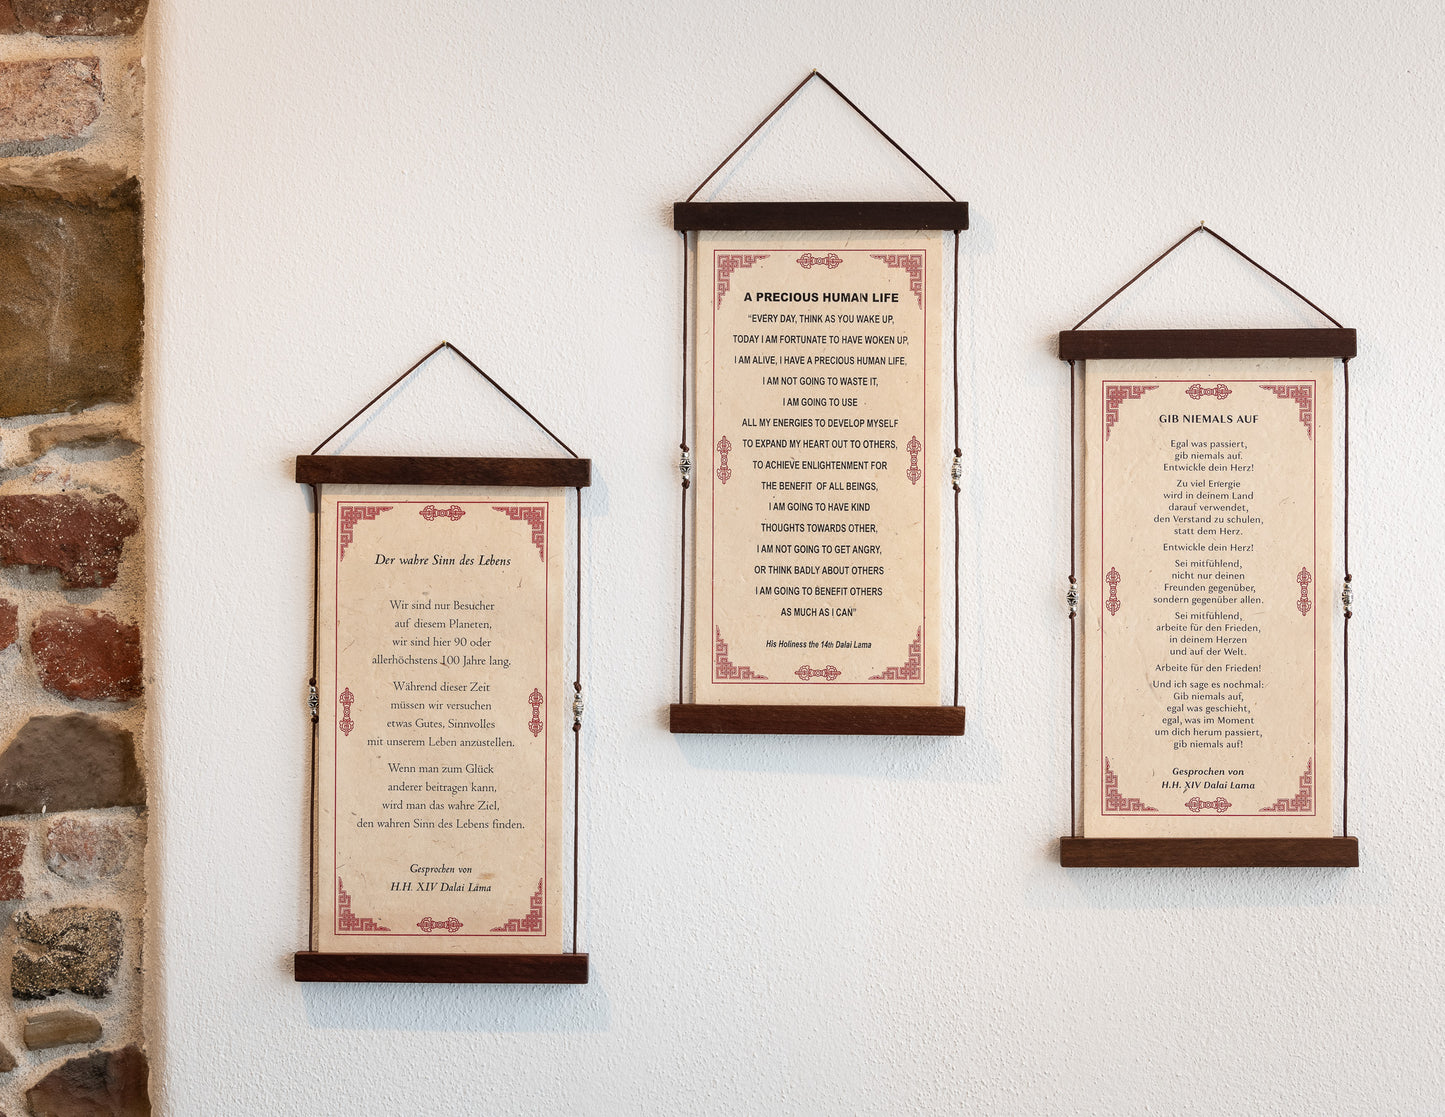 Der wahre Sinn des Lebens
Wir sind nur Besucher
auf diesem Planeten,
wir sind hier 90 oder
allerhöchstens 100 Jahre lang.
Während dieser Zeit
müssen wir versuchen
etwas Gutes, Sinnvolles
mit unserem Leben anzustellen.
Wenn man zum Glück
anderer beitragen kann,
wird man das wahre Ziel,
den wahren Sinn des Lebens finden.
Gesprochen von
H.H. XIV Dalai Lama
A PRECIOUS HUMAN LIFE
“EVERY DAY, THINK AS YOU WAKE UP,
TODAY I AM FORTUNATE TO HAVE WOKEN UP,
I AM ALIVE, I HAVE A PRECIOUS HUMAN LIFE,
I AM NOT GOING TO WASTE IT,
I AM GOING TO USE
ALL MY ENERGIES TO DEVELOP MYSELF
TO EXPAND MY HEART OUT TO OTHERS,
TO ACHIEVE ENLIGHTENMENT FOR
THE BENEFIT OF ALL BEINGS,
I AM GOING TO HAVE KIND
THOUGHTS TOWARDS OTHER,
I AM NOT GOING TO GET ANGRY,
OR THINK BADLY ABOUT OTHERS
I AM GOING TO BENEFIT OTHERS
AS MUCH AS I CAN”
His Holiness the 14th Dalai Lama
GIB NIEMALS AUF
Egal was passiert,
gib niemals auf.
Entwickle dein Herz!
Zu viel Energie
wird in deinem Land
darauf verwendet,
den Verstand zu schulen,
statt dem Herz.
Entwickle dein Herz!
Sei mitfühlend,
nicht nur deinen
Freunden gegenüber,
sondern gegenüber allen.
Sei mitfühlend,
arbeite für den Frieden,
in deinem Herzen
und auf der Welt.
Arbeite für den Frieden!
Und ich sage es nochmal:
Gib niemals auf,
egal was geschieht,
egal, was im Moment
um dich herum passiert,
gib niemals auf!
Gesprochen von
H.H. XIV Dalai Lama